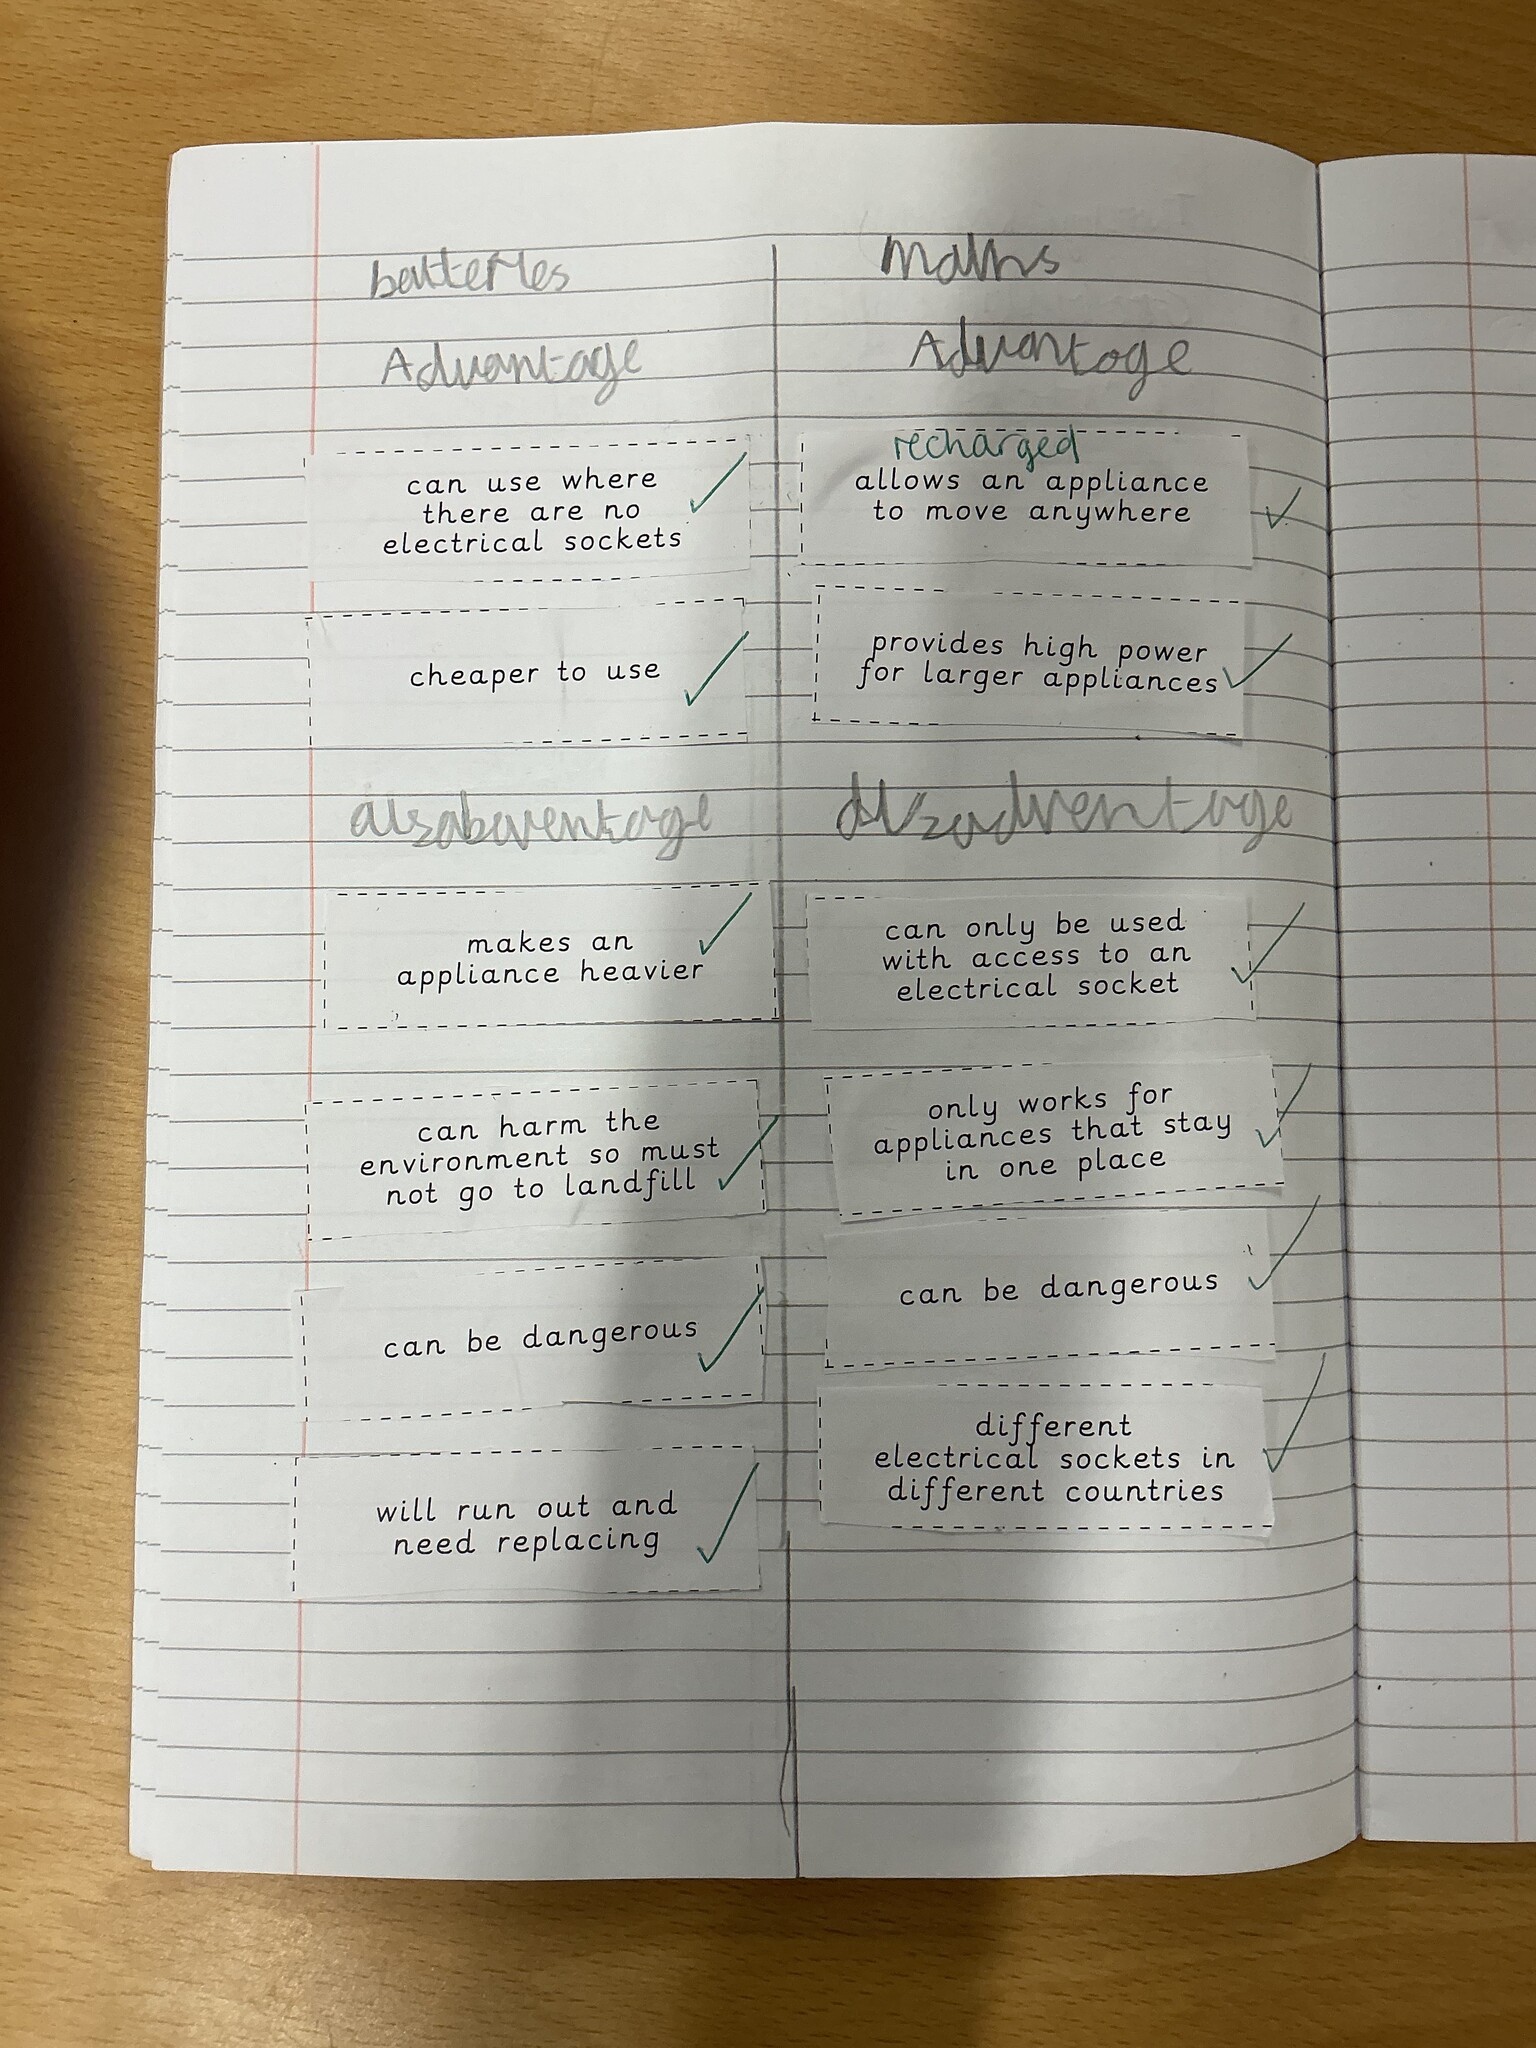 batteries
Advantage
can use where
there are no
electrical sockets
cheaper to use
disabaventage
makes an
appliance heavier
can harm the
environment so must
not go to landfill
can be dangerous
will run out and
need replacing
mains
Advantage
recharged
allows an appliance
to move anywhere
provides high power
for larger appliances
dizadventage
can only be used
with access to an
electrical socket
only works for
appliances that stay
in one place
can be dangerous
different
electrical sockets in
different countries